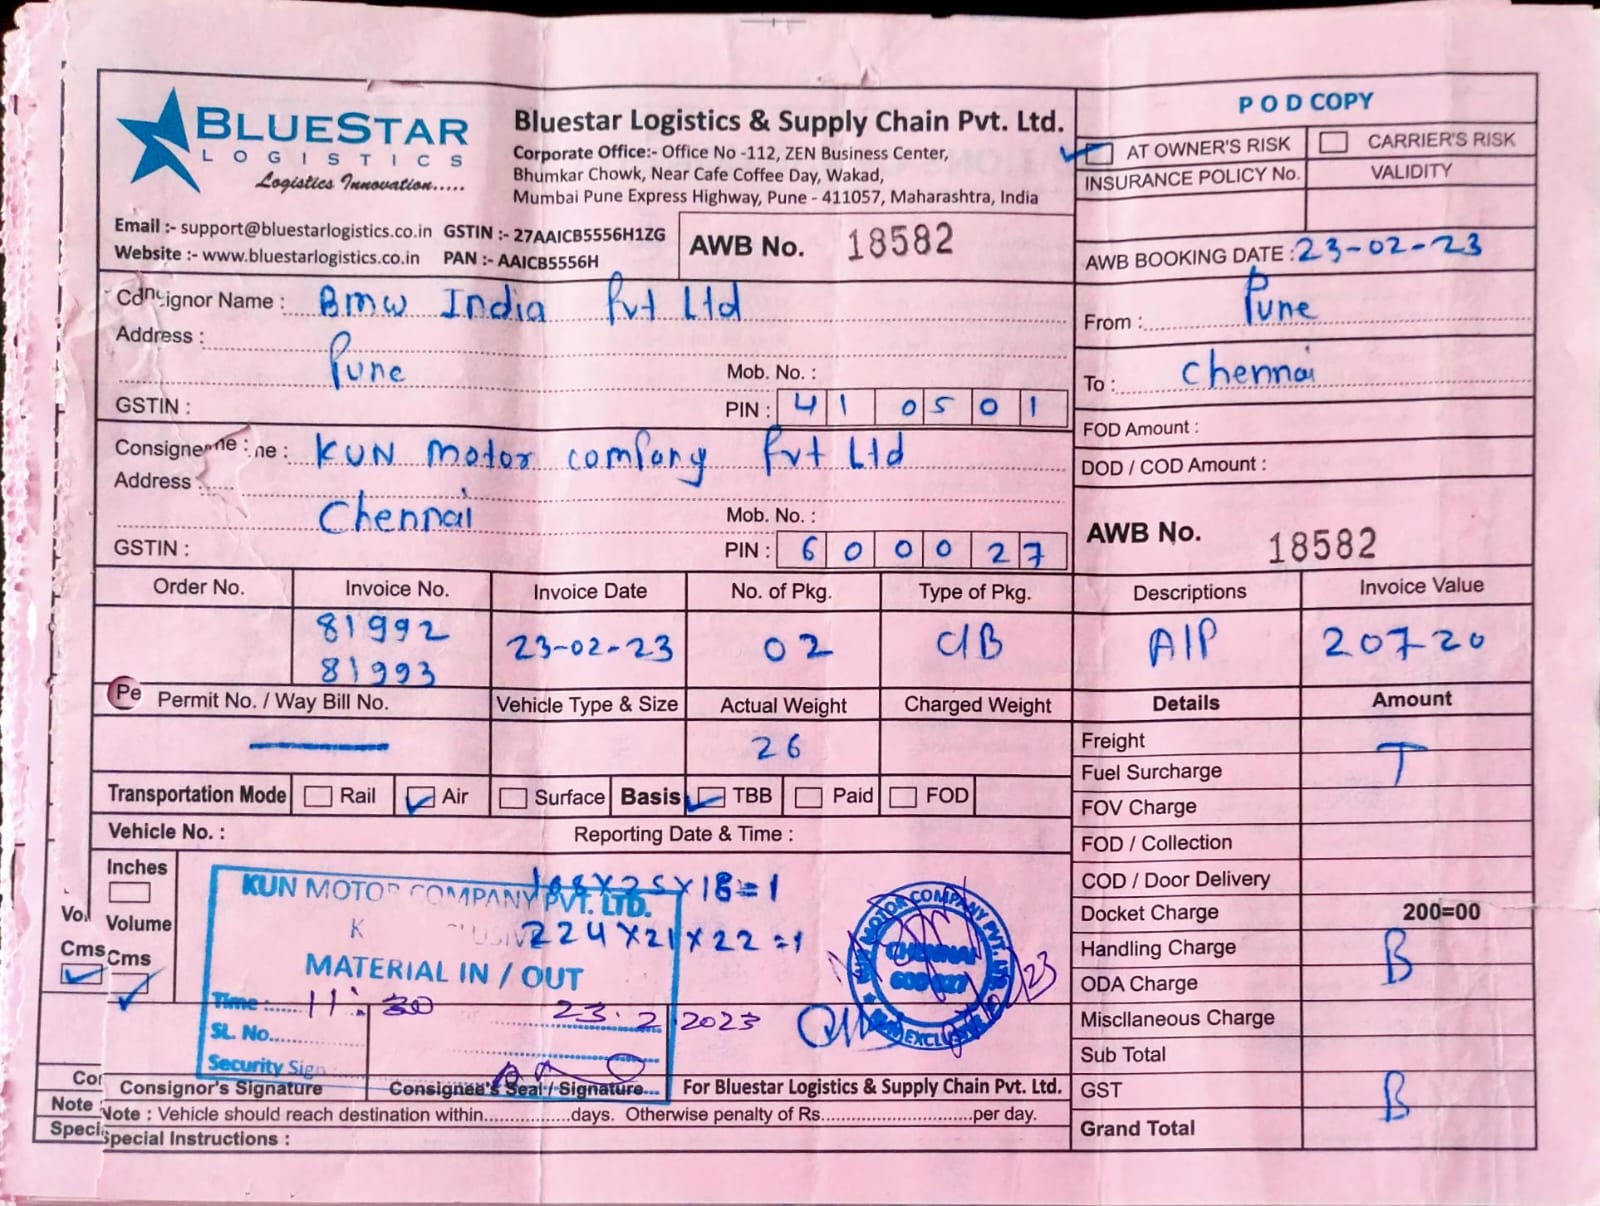 BLUESTAR
LOGISTICS
Logistics Innovation.....
Bluestar Logistics & Supply Chain Pvt. Ltd.
Corporate Office:- Office No -112, ZEN Business Center,
Bhumkar Chowk, Near Cafe Coffee Day, Wakad,
Mumbai Pune Express Highway, Pune - 411057, Maharashtra, India
Email :- support@bluestarlogistics.co.in GSTIN :- 27AAICB5556H1ZG
Website :- www.bluestarlogistics.co.in PAN :- AAICB5556H
AWB No. 18582
P O D COPY
AT OWNER'S RISK CARRIER'S RISK
INSURANCE POLICY No. VALIDITY
AWB BOOKING DATE : 23-02-23
Consignor Name : BMW India Pvt Ltd
Address :
Pune
Mob. No. :
GSTIN :
PIN : 410501
From : Pune
To : Chennai
FOD Amount :
DOD / COD Amount :
Consignee Name : KUN Motor Company Pvt Ltd
Address
Chennai
Mob. No. :
GSTIN :
PIN : 600027
AWB No. 18582
Order No. Invoice No. Invoice Date No. of Pkg. Type of Pkg. Descriptions Invoice Value
81992 23-02-23 02 C/B A/P 20720
81993
Permit No. / Way Bill No. Vehicle Type & Size Actual Weight Charged Weight Details Amount
26
Transportation Mode Rail Air Surface Basis TBB Paid FOD
Vehicle No. : Reporting Date & Time :
Inches
Volume
Cms
Cms
KUN MOTOR COMPANY PVT. LTD.
x25x18=1
224x21x22=1
MATERIAL IN / OUT
Time : 11:30 23.2.2023
SL. No.
Security Sign
KUN MOTOR COMPANY PVT. LTD.
CHENNAI
600 027
Freight T
Fuel Surcharge
FOV Charge
FOD / Collection
COD / Door Delivery
Docket Charge 200=00
Handling Charge B
ODA Charge
Miscllaneous Charge
Sub Total
GST B
Grand Total
Consignor's Signature Consignee's Seal / Signature... For Bluestar Logistics & Supply Chain Pvt. Ltd.
Note : Vehicle should reach destination within....................days. Otherwise penalty of Rs...........................per day.
Special Instructions :